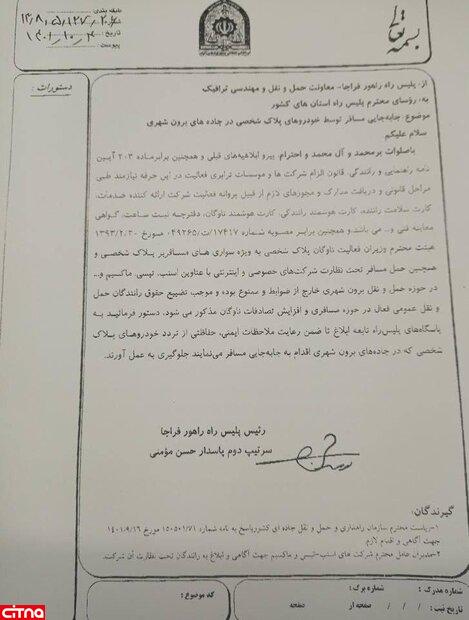 بسمه تعالی
طبقه بندی :
شماره: ۱۳/۸/۵/۱۲۷/۲۰
تاریخ : ۱۴۰۱/۱۰/۴
پیوست :
دستورات :
از: پلیس راه راهور فراجا- معاونت حمل و نقل و مهندسی ترافیک
به: رؤسای محترم پلیس راه استان های کشور
موضوع: جابه‌جایی مسافر توسط خودروهای پلاک شخصی در جاده های برون شهری
سلام علیکم
باصلوات برمحمد و آل محمد و احترام، پیرو ابلاغیه‌های قبلی و همچنین برابرماده ۲۰۳ آیین
نامه راهنمایی و رانندگی، قانون الزام شرکت ها و موسسات ترابری فعالیت در این حرفه نیازمند طی
مراحل قانونی و دریافت مدارک و مجوزهای لازم از قبیل پروانه فعالیت شرکت ارائه کننده خدمات،
کارت سلامت راننده، کارت هوشمند رانندگی، کارت هوشمند ناوگان، دفترچه ثبت ساعت، گواهی
معاینه فنی و... می باشد.و همچنین برابر مصوبه شماره ۱۷۴۱۷/ت۴۹۲۶۵ه مورخ ۱۳۹۳/۲/۳۰
هیئت محترم وزیران فعالیت ناوگان پلاک شخصی به ویژه سواری های مسافربر پلاک شخصی و
همچنین حمل مسافر تحت نظارت شرکت‌های خصوصی و اینترنتی با عناوین اسنپ، تپسی، ماکسیم و...
در حوزه حمل و نقل برون شهری خارج از ضوابط و ممنوع بوده و موجب تضییع حقوق رانندگان حمل
و نقل عمومی فعال در حوزه مسافری و افزایش تصادفات ناوگان مذکور می شود. دستور فرمائید به
پاسگاه‌های پلیس‌راه تابعه ابلاغ تا ضمن رعایت ملاحظات ایمنی، حفاظتی از تردد خودروهای پلاک
شخصی که در جاده‌های برون شهری اقدام به جابه‌جایی مسافر می‌نمایند جلوگیری به عمل آورند.
رئیس پلیس راه راهور فراجا
سرتیپ دوم پاسدار حسن مؤمنی
گیرندگان:
۱-ریاست محترم سازمان راهداری و حمل و نقل جاده ای کشورپاسخ به نامه شماره ۱۵۰۵۰۱/۷۱ مورخ ۱۴۰۱/۹/۱۶
جهت آگاهی و اقدام لازم.
۲-مدیران عامل محترم شرکت های اسنپ-تپسی و ماکسیم جهت آگاهی و ابلاغ به رانندگان تحت نظارت آن شرکت.
شماره مدرک : شماره برگ :
تاریخ ثبت : / / / صفحه از صفحه
کد موضوع :
citna